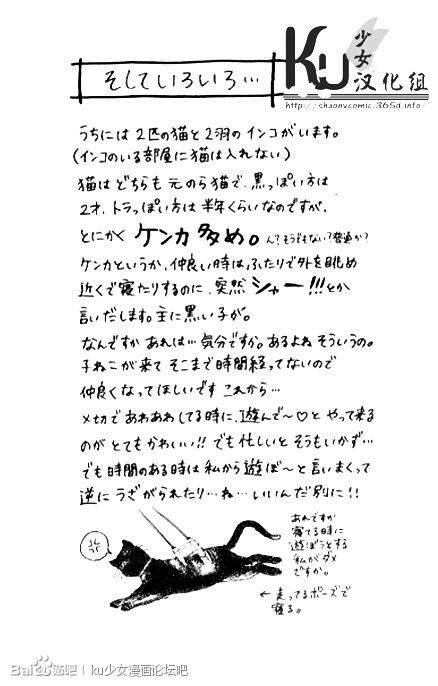 そしていろいろ…
Ku少女汉化组
http://shaonvcomic.365d.info
うちには2匹の猫と2羽のインコがいます。
(インコのいる部屋に猫は入れない)
猫はどちらも元のら猫で、黒っぽい方は
2才、トラっぽい方は半年くらいなのですが、
とにかくケンカ多め。ん？そうでもない？普通か？
ケンカというか、仲良い時はふたりで外を眺め
近くで寝たりするのに、突然シャー!!!とか
言いだします。主に黒い子が。
なんですかあれは…気分ですか。あるよねそういうの。
子ねこが来てそこまで時間経ってないので
仲良くなってほしいですこれから…
〆切であわあわしてる時に、遊んで〜♡とやって来る
のがとてもかわいい!!でも忙しいとそうもいかず…
でも時間のある時は私から遊ぼ〜と言いまくって
逆にうざがられたり…ね…いいんだ別に!!
あれですか
寝てる時に
遊ぼうとする
私がダメ
ですか。
←走ってるポーズで
寝る。
Bai 贴吧 | ku少女漫画论坛吧